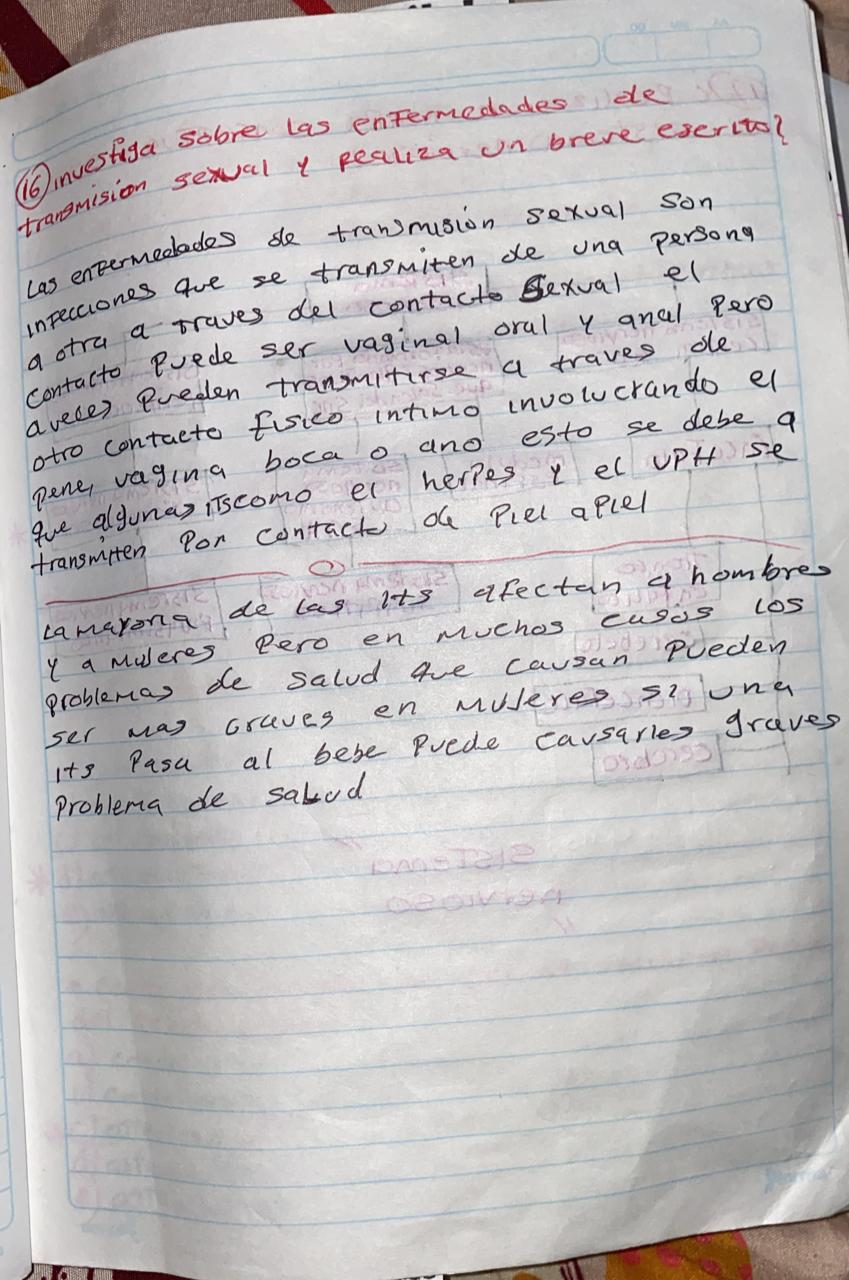 16 investiga sobre las enfermedades de
transmision sexual y realiza un breve escrito?
Las enfermedades de transmisión sexual son
infecciones que se transmiten de una persona
a otra a traves del contacto sexual el
contacto puede ser vaginal oral y anal pero
aveces pueden transmitirse a traves de
otro contacto fisico intimo involucrando el
pene, vagina boca o ano esto se debe a
que algunas ITS como el herpes y el VPH se
transmiten por contacto de piel a piel
La mayoria de las Its afectan a hombres
y a mujeres pero en muchos casos los
problemas de salud que causan pueden
ser mas graves en mujeres si una
its pasa al bebe puede causarles graves
problema de salud